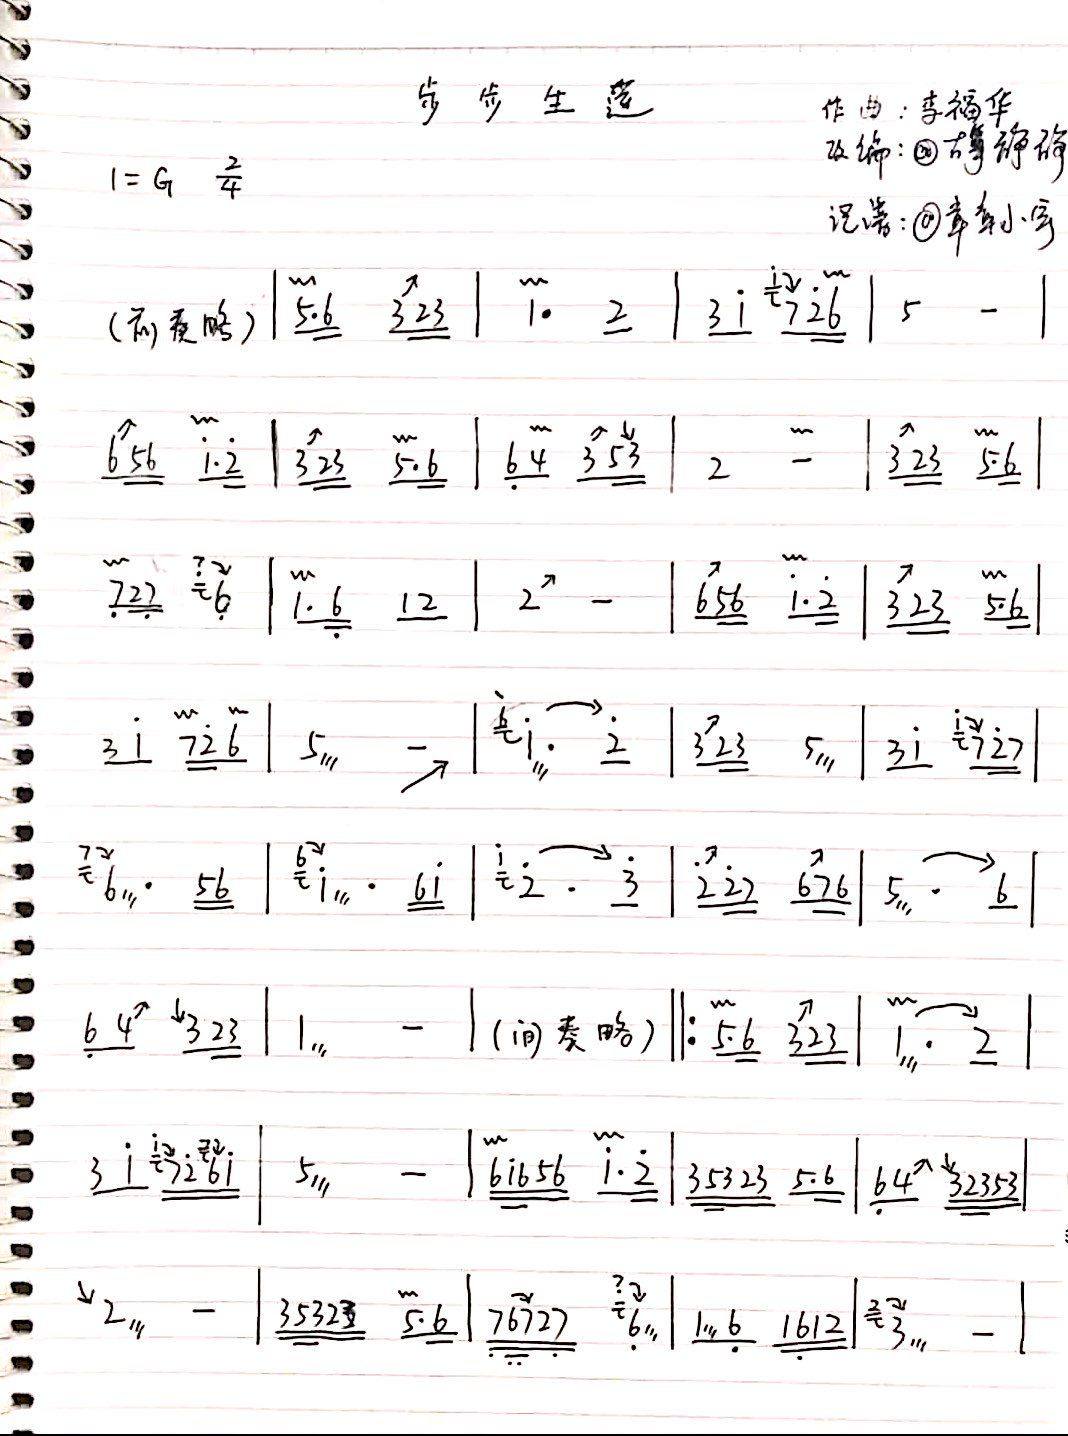 步步生莲
作曲：李福华
改编：@古筝静静
1=G 2/4
记谱：@
(前奏略) | 5·6 323 | 1· 2 | 3i 726 | 5 - |
656 i·2 | 323 5·6 | 64 353 | 2 - | 323 5·6 |
727 6 | 1·6 12 | 2 - | 656 i·2 | 323 5·6 |
3i 726 | 5 - | i· 2 | 323 5 | 3i 727 |
6· 56 | i· 6i | 2· 3 | 227 676 | 5· 6 |
64 323 | 1 - | (间奏略) ‖: 5·6 323 | 1· 2 |
3i 726i | 5 - | 6i656 i·2 | 35323 5·6 | 64 32353 |
2 - | 35323 5·6 | 76727 6 | 1 6 1612 | 3 - |